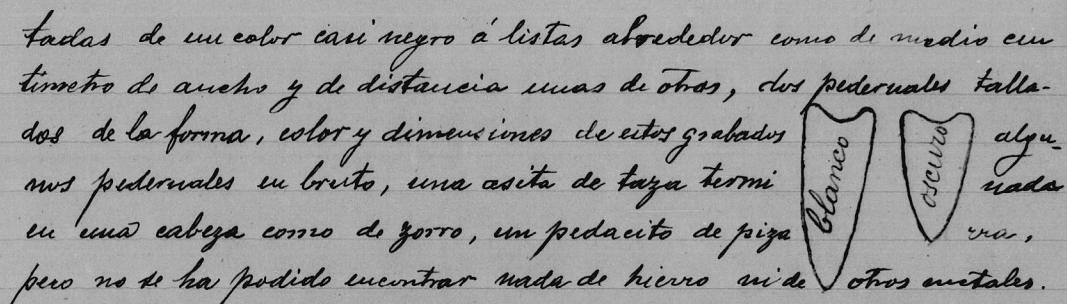 tadas de un color casi negro á listas alrededor como de medio cen
tímetro de ancho y de distancia unas de otras, dos pedernales talla-
dos de la forma, color y dimensiones de estos grabados blanco oscuro algu-
nos pedernales en bruto, una asita de taza termi nada
en una cabeza como de zorro, un pedacito de piza rra,
pero no se ha podido encontrar nada de hierro ni de otros metales.